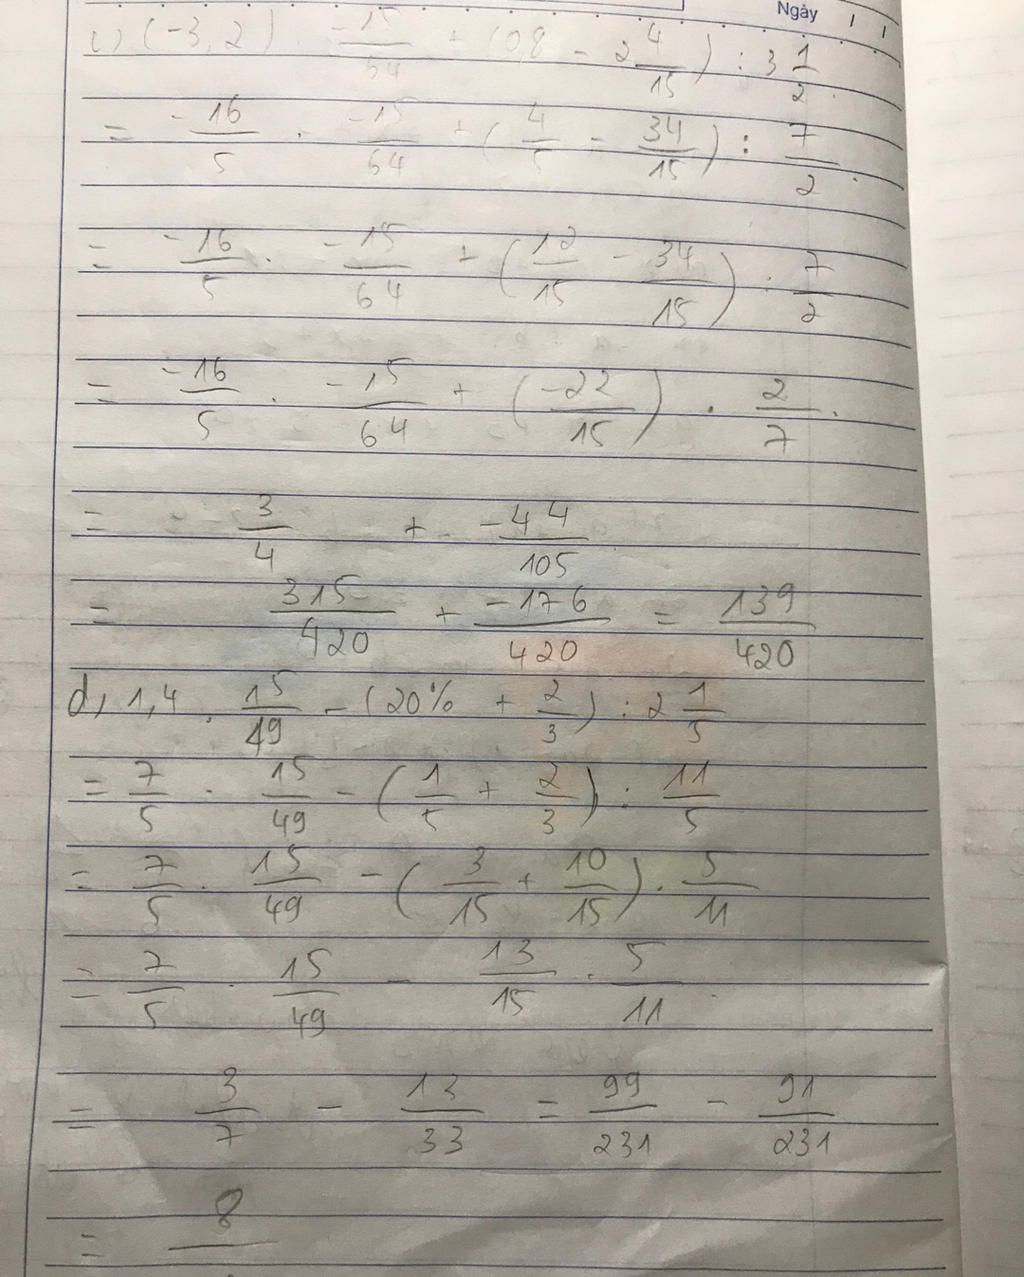 Ngày / /
c) (-3,2) . -15/64 + (0,8 - 2 4/15) : 3 1/2
= -16/5 . -15/64 + (4/5 - 34/15) : 7/2
= -16/5 . -15/64 + (12/15 - 34/15) : 7/2
= -16/5 . -15/64 + (-22/15) . 2/7
= 3/4 + -44/105
= 315/420 + -176/420 = 139/420
d, 1,4 . 15/49 - (20% + 2/3) : 2 1/5
= 7/5 . 15/49 - (1/5 + 2/3) : 11/5
= 7/5 . 15/49 - (3/15 + 10/15) . 5/11
= 7/5 . 15/49 - 13/15 . 5/11
= 3/7 - 13/33 = 99/231 - 91/231
= 8/